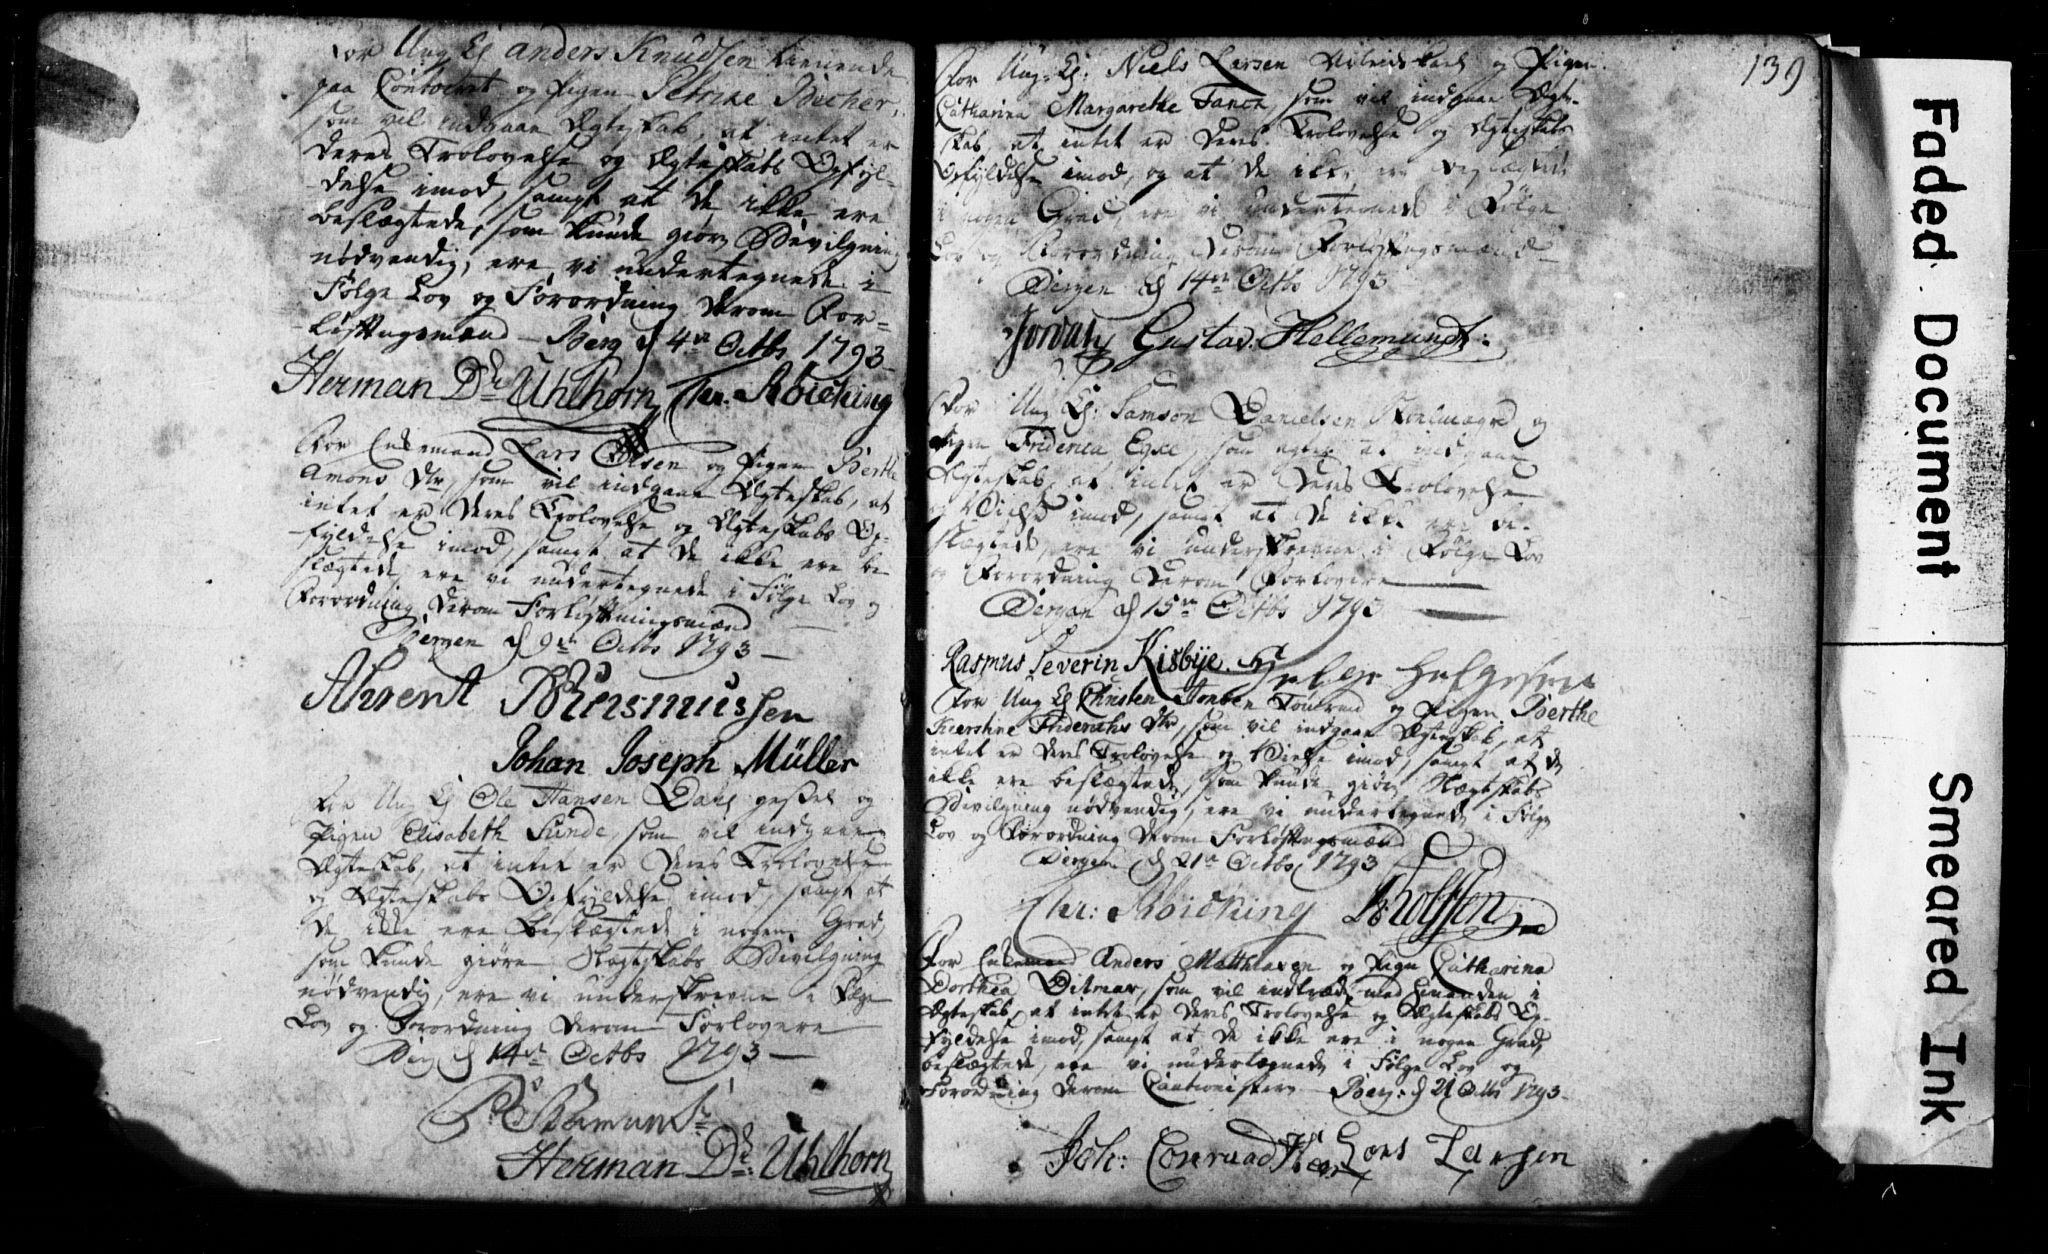 For Ung C. anders Knudsen tienende
paa Contoiret og Pigen Petrike Bücher,
som vil indgaae Ægteskab, at intet er
deres Trolovelse og Ægteskabs Opfyl-
delse imod, samt at de ikke ere
beslægtede, som kunde giøre Bevilgning
nødvendig, ere vi undertegnede i
Følge Lov og Forordning derom For-
løftningsmænd – Berg d 4de Octbr 1793
Herman Dk Uhlhorn Chr. Roicking
For Enkemand Lars Olsen og Pigen Berthe
Amons Dtr, som vil indgaae Ægteskab, at
intet er deres Trolovelse og Ægteskabs Op-
fyldelse imod, samt at de ikke ere be
slægtede, ere vi undertegnede i Følge Lov og
Forordning derom Forløftningsmænd
Bergen d 9de Octbr 1793 –
Ahrent Rasmussen
Johan Joseph Müller
For Ung C Ole Hansen Dahl og
Pigen Elisabeth Sunde, som vil indgaae
Ægteskab, at intet er deres Trolovelse
og Ægteskabs Opfyldelse imod, samt at
de ikke ere beslægtede i nogen Grad,
som kunde giøre Slægtskabs Bevilgning
nødvendig, ere vi underskrevne i Følge
Lov og Forordning derom Forlovere
Berg d 14de Octbr 1793 –
Herman Dk: Uhlhorn
139
For Ung C: Niels Larsen og Pigen
Catharina Margarethe som vil indgaae Ægte-
skab, at intet er deres Trolovelse og Ægteskabs
Opfyldelse imod, og at de ikke ere beslægtede
i nogen Grad, ere vi undertegnede i Følge
Lov og Forordning derom Forløftningsmænd
Bergen d 14de Octbr 1793
Jordan Gustav Hellemundt:
For Ung C: Samson Danielsen og
Pigen Friderica som agter at indgaae
Ægteskab, at intet er deres Trolovelse
og Vielse imod, samt at de ikke ere be-
slægtede, ere vi underskrevne i Følge Lov
og Forordning derom Forlovere
Bergen d 15de Octbr 1793
Rasmus Severin Kisbye. Helge Helgesen
For Ung C Christen Jonsen og Pigen Berthe
Kierstine Friderichs Dtr, som vil indgaae Ægteskab, at
intet er deres Trolovelse og Vielse imod, samt at de
ikke ere beslægtede, som kunde giøre Slægtskabs
Bevilgning nødvendig, ere vi undertegnede i Følge
Lov og Forordning derom Forløftningsmænd
Bergen d 21de Octbr 1793
Chr: Roicking
For Enkemand Anders Matthiasen og Pigen Catharina
Dorthea Ditmar, som vil indtræde med hinanden i
Ægteskab, at intet er deres Trolovelse og Ægteskabs Op-
fyldelse imod, samt at de ikke ere i nogen Grad
beslægtede, ere vi undertegnede i Følge Lov og
Forordning derom Cautionister – Berg: d 21 Octbr 1793
Joh: Conraad Lars Larsen
Faded Document
Smeared Ink